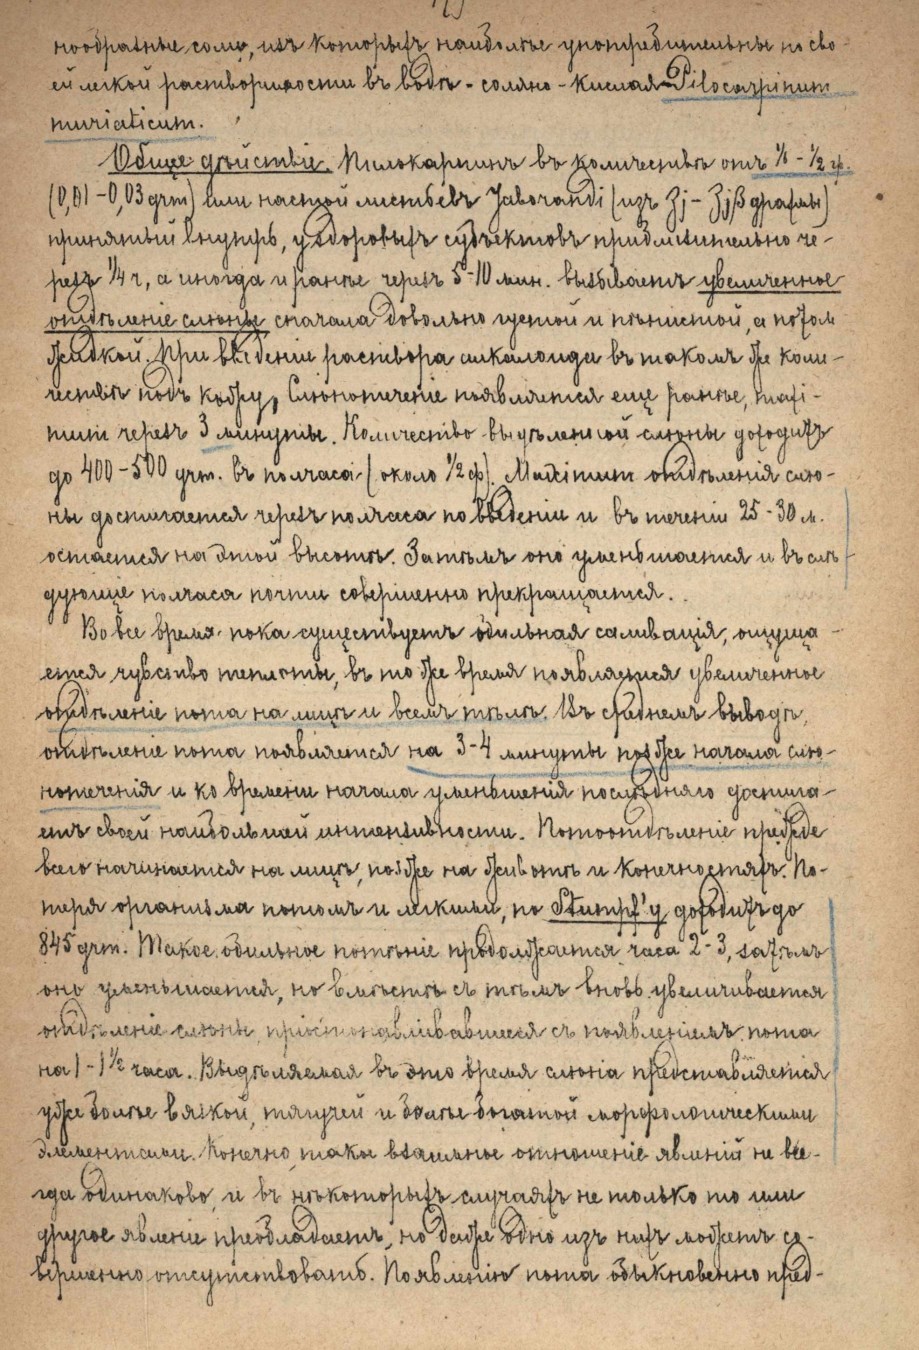 нообразные соли, изъ которыхъ наиболѣе употребительны по сво-
ей легкой растворимости въ водѣ - соляно-кислая Pilocarpinum
muriaticum.
Общее дѣйствіе. Пилокарпинъ въ количествѣ отъ 1/6 - 1/2 гр.
(0,01 - 0,03 grm) или настой листьевъ Jaborandi (изъ ʒj - ʒjβ драхмы)
принятый внутрь, у здоровыхъ субъектовъ приблизительно че-
резъ 1/4 ч, а иногда и ранѣе черезъ 5-10 мин. вызываетъ увеличенное
отдѣленіе слюны, сначала довольно густой и пѣнистой, а потом
жидкой. При введеніи раствора алкалоида въ такомъ же коли-
чествѣ подъ кожу, Слюнотеченіе появляется еще ранѣе, maxi-
mum черезъ 3 минуты. Количество выдѣленной слюны доходитъ
до 400-500 grm. въ полчаса (около 1/2 ф). Maximum отдѣленія слю-
ны достигается черезъ полчаса по введеніи и въ теченіи 25-30 м.
остается на этой высотѣ. Затѣмъ оно уменьшается и въ слѣ-
дующіе полчаса почти совершенно прекращается.
Во все время пока существуетъ обильная саливація, ощуща-
ется чувство теплоты, въ то же время появляется увеличенное
отдѣленіе пота на лицѣ и всемъ тѣлѣ. Въ среднемъ выводѣ,
отдѣленіе пота появляется на 3-4 минуты позже начала слю-
нотеченія и ко времени начала уменьшенія послѣдняго достига-
етъ своей наибольшей интензивности. Потоотдѣленіе прежде
всего начинается на лицѣ, позже на животѣ и конечностяхъ. По-
теря организма потомъ и легкими, по Stumpf'у доходитъ до
845 grm. Такое обильное потѣніе продолжается часа 2-3, затѣмъ
оно уменьшается, но вмѣстѣ съ тѣмъ вновь увеличивается
отдѣленіе слюны, пріостонавлівавшееся съ появленіемъ пота
на 1 - 1 1/2 часа. Выдѣляемая въ это время слюна представляется
уже болѣе вязкой, тягучей и болѣе богатой морфологическими
элементами. Конечно такое взаимное отношеніе явленій не все-
гда одинаково, и въ нѣкоторыхъ случаяхъ не только то или
другое явленіе преобладаетъ, но даже одно изъ нихъ можетъ со-
вершенно отсутствовать. Появленію пота обыкновенно пред-